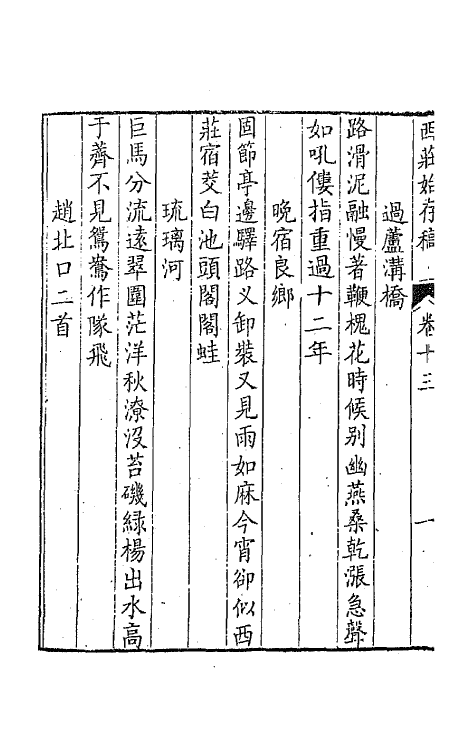 西莊始存稿 卷十三 一
過蘆溝橋
路滑泥融慢著鞭槐花時候别幽燕桑乾漲急聲
如吼僂指重過十二年
晚宿良鄉
固節亭邊驛路乂卸裝又見雨如麻今宵卻似西
莊宿茭白池頭閣閣蛙
琉璃河
巨馬分流遠翠圍茫洋秋潦没苔磯綠楊出水高
于薺不見鴛鴦作隊飛
趙北口二首